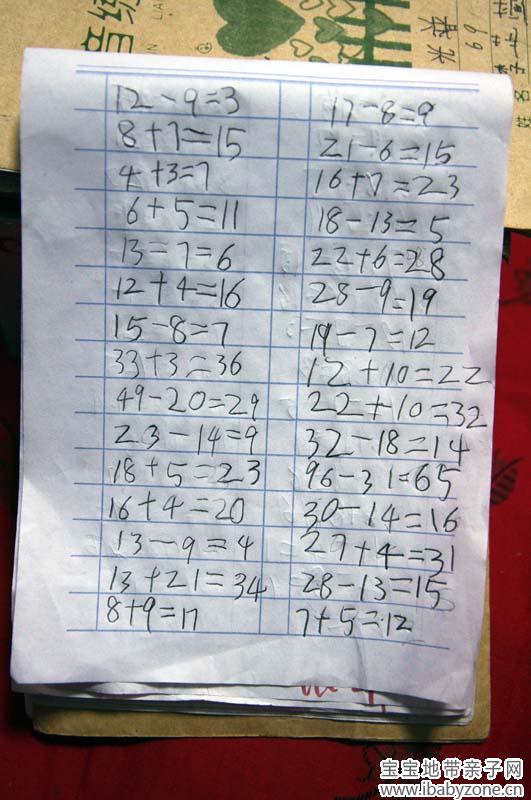 12-9=3
8+7=15
4+3=7
6+5=11
13=7=6
12+4=16
15-8=7
33+3=36
49-20=29
23-14=9
18+5=23
16+4=20
13-9=4
13+21=34
8+9=17
17-8=9
21-6=15
16+7=23
18-13=5
22+6=28
28-9=19
19-7=12
12+10=22
22+10=32
32-18=14
96-31=65
30-14=16
27+4=31
28-13=15
7+5=12
音
LIAN
姓名
69
宝宝地带亲子网
www.ibabyzone.cn